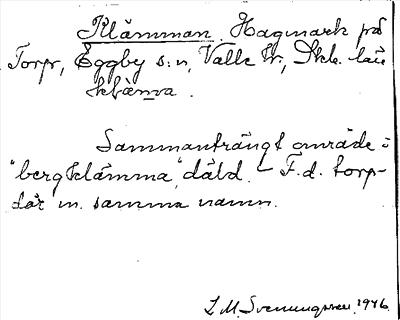 Klämman. Hagmark på
Torp, Eggby s:n, Valle hd, Skb. län
klämma.
Sammanträngt område i
"bergklämma", däld. - F.d. torp-
där m. samma namn.
S. M. Svenungsson, 1946.